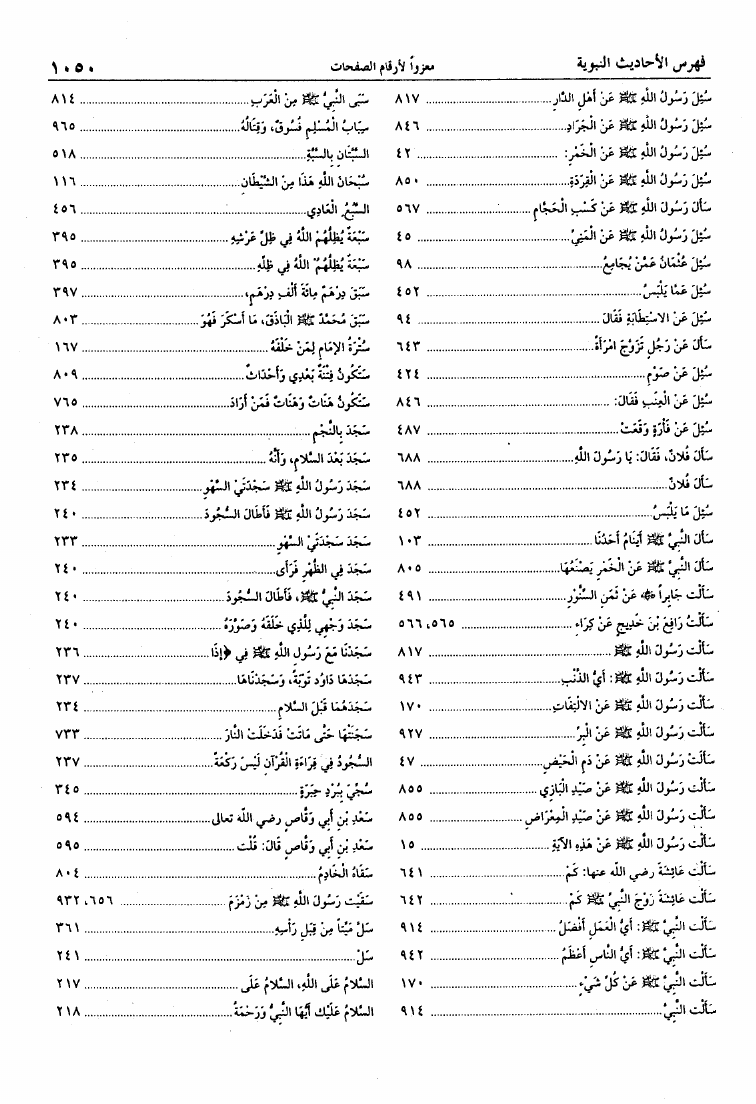 فهرس الأحاديث النبوية معزواً لأرقام الصفحات ١٠٥٠
سُئِلَ رَسُولُ اللهِ ﷺ عَنْ أَهْلِ الدَّارِ ........ ٨١٧
سُئِلَ رَسُولُ اللهِ ﷺ عَنْ الْجَرَادِ ........ ٨٤٦
سُئِلَ رَسُولُ اللهِ ﷺ عَنْ الْخَمْرِ: ........ ٤٢
سُئِلَ رَسُولُ اللهِ ﷺ عَنْ الْقِرَدَةِ ........ ٨٥٠
سَأَلَ رَسُولَ اللهِ ﷺ عَنْ كَسْبِ الْحَجَّامِ ........ ٥٦٧
سُئِلَ رَسُولُ اللهِ ﷺ عَنْ الْمَنِيِّ ........ ٤٥
سُئِلَ عُثْمَانُ عَمَّنْ يُجَامِعُ ........ ٩٨
سُئِلَ عَمَّا يَلْبَسُ ........ ٤٥٢
سُئِلَ عَنْ الاسْتِطَابَةِ فَقَالَ ........ ٩٤
سَأَلَ عَنْ رَجُلٍ تَزَوَّجَ امْرَأَةً ........ ٦٤٣
سُئِلَ عَنْ صَوْمِ ........ ٤٢٤
سُئِلَ عَنْ الْعِنَبِ فَقَالَ: ........ ٨٤٦
سُئِلَ عَنْ فَأْرَةٍ وَقَعَتْ ........ ٤٨٧
سَأَلَ فُلَانٌ، فَقَالَ: يَا رَسُولَ اللهِ ........ ٦٨٨
سَأَلَ فُلَانٌ ........ ٦٨٨
سُئِلَ مَا يَلْبَسُ ........ ٤٥٢
سَأَلَ النَّبِيَّ ﷺ أَيَنَامُ أَحَدُنَا ........ ١٠٣
سَأَلَ النَّبِيَّ ﷺ عَنْ الْخَمْرِ يَصْنَعُهَا ........ ٨٠٥
سَأَلْت جَابِراً ﵁ عَنْ ثَمَنِ السِّنَّوْرِ ........ ٤٩١
سَأَلْتُ رَافِعَ بْنَ خَدِيجٍ عَنْ كِرَاءِ ........ ٥٦٥، ٥٦٦
سَأَلْت رَسُولَ اللهِ ﷺ ........ ٨١٧
سَأَلْت رَسُولَ اللهِ ﷺ: أَيُّ الذَّنْبِ ........ ٩٤٣
سَأَلْت رَسُولَ اللهِ ﷺ عَنْ الالْتِفَاتِ ........ ١٧٠
سَأَلْت رَسُولَ اللهِ ﷺ عَنْ الْبِرِّ ........ ٩٢٧
سَأَلَتْ رَسُولَ اللهِ ﷺ عَنْ دَمِ الْحَيْضِ ........ ٤٧
سَأَلْت رَسُولَ اللهِ ﷺ عَنْ صَيْدِ الْبَازِي ........ ٨٥٥
سَأَلْت رَسُولَ اللهِ ﷺ عَنْ صَيْدِ الْمِعْرَاضِ ........ ٨٥٥
سَأَلْت رَسُولَ اللهِ ﷺ عَنْ هَذِهِ الآيَةِ ........ ١٥
سَأَلْت عَائِشَةَ رضي الله عنها: كَمْ ........ ٦٤١
سَأَلْت عَائِشَةَ زَوْجَ النَّبِيِّ ﷺ كَمْ ........ ٦٤٢
سَأَلْت النَّبِيَّ ﷺ: أَيُّ الْعَمَلِ أَفْضَلُ ........ ٩١٤
سَأَلْت النَّبِيَّ ﷺ: أَيُّ النَّاسِ أَعْظَمُ ........ ٩٤٢
سَأَلْت النَّبِيَّ ﷺ عَنْ كُلِّ شَيْءٍ ........ ١٧٠
سَأَلْت النَّبِيَّ ........ ٩١٤
سَبَى النَّبِيُّ ﷺ مِنْ الْعَرَبِ ........ ٨١٤
سِبَابُ الْمُسْلِمِ فُسُوقٌ، وَقِتَالُهُ ........ ٩٦٥
السِّنَّتَانِ بِالسِّنَّةِ ........ ٥١٨
سُبْحَانَ اللهِ هَذَا مِنْ الشَّيْطَانِ ........ ١١٦
السَّبُعُ الْعَادِي ........ ٤٥٦
سَبْعَةٌ يُظِلُّهُمْ اللهُ فِي ظِلِّ عَرْشِهِ ........ ٣٩٥
سَبْعَةٌ يُظِلُّهُمْ اللهُ فِي ظِلِّهِ ........ ٣٩٥
سَبَقَ دِرْهَمٌ مِائَةَ أَلْفِ دِرْهَمٍ، ........ ٣٩٧
سَبَقَ مُحَمَّدٌ ﷺ الْبَاذَقَ، مَا أَسْكَرَ فَهُوَ ........ ٨٠٣
سُتْرَةُ الإِمَامِ لِمَنْ خَلْفَهُ ........ ١٦٧
سَتَكُونُ فِتْنَةٌ بَعْدِي وَأَحْدَاثٌ ........ ٨٠٩
سَتَكُونُ هَنَاتٌ وَهَنَاتٌ فَمَنْ أَرَادَ ........ ٧٦٥
سَجَدَ بِالنَّجْمِ ........ ٢٣٨
سَجَدَ بَعْدَ السَّلَامِ، وَأَنَّهُ ........ ٢٣٥
سَجَدَ رَسُولُ اللهِ ﷺ سَجْدَتَيْ السَّهْوِ ........ ٢٣٤
سَجَدَ رَسُولُ اللهِ ﷺ فَأَطَالَ السُّجُودَ ........ ٢٤٠
سَجَدَ سَجْدَتَيْ السَّهْوِ ........ ٢٣٣
سَجَدَ فِي الظُّهْرِ فَرَأَى ........ ٢٤٠
سَجَدَ النَّبِيُّ ﷺ، فَأَطَالَ السُّجُودَ ........ ٢٤٠
سَجَدَ وَجْهِي لِلَّذِي خَلَقَهُ وَصَوَّرَهُ ........ ٢٤٠
سَجَدْنَا مَعَ رَسُولِ اللهِ ﷺ فِي ﴿إِذَا ........ ٢٣٦
سَجَدَهَا دَاوُد تَوْبَةً، وَسَجَدْنَاهَا ........ ٢٣٧
سَجَدَهُمَا قَبْلَ السَّلَامِ ........ ٢٣٤
سَجَنَتْهَا حَتَّى مَاتَتْ فَدَخَلَتْ النَّارَ ........ ٧٣٣
السُّجُودُ فِي قِرَاءَةِ الْقُرْآنِ لَيْسَ رَكْعَةً ........ ٢٣٧
سُجِّيَ بِبُرْدِ حِبَرَةٍ ........ ٣٤٥
سَعْدِ بْنِ أَبِي وَقَّاصٍ رضي الله تعالى ........ ٥٩٤
سَعْدِ بْنِ أَبِي وَقَّاصٍ قَالَ: قُلْت ........ ٥٩٥
سَقَاهُ الْخَادِمُ ........ ٨٠٤
سَقَيْت رَسُولَ اللهِ ﷺ مِنْ زَمْزَمَ ........ ٦٥٦، ٩٣٢
سَلَّ مَيِّتاً مِنْ قِبَلِ رَأْسِهِ ........ ٣٦١
سَلْ ........ ٢٤١
السَّلَامُ عَلَى اللهِ، السَّلَامُ عَلَى ........ ٢١٧
السَّلَامُ عَلَيْك أَيُّهَا النَّبِيُّ وَرَحْمَةُ ........ ٢١٨